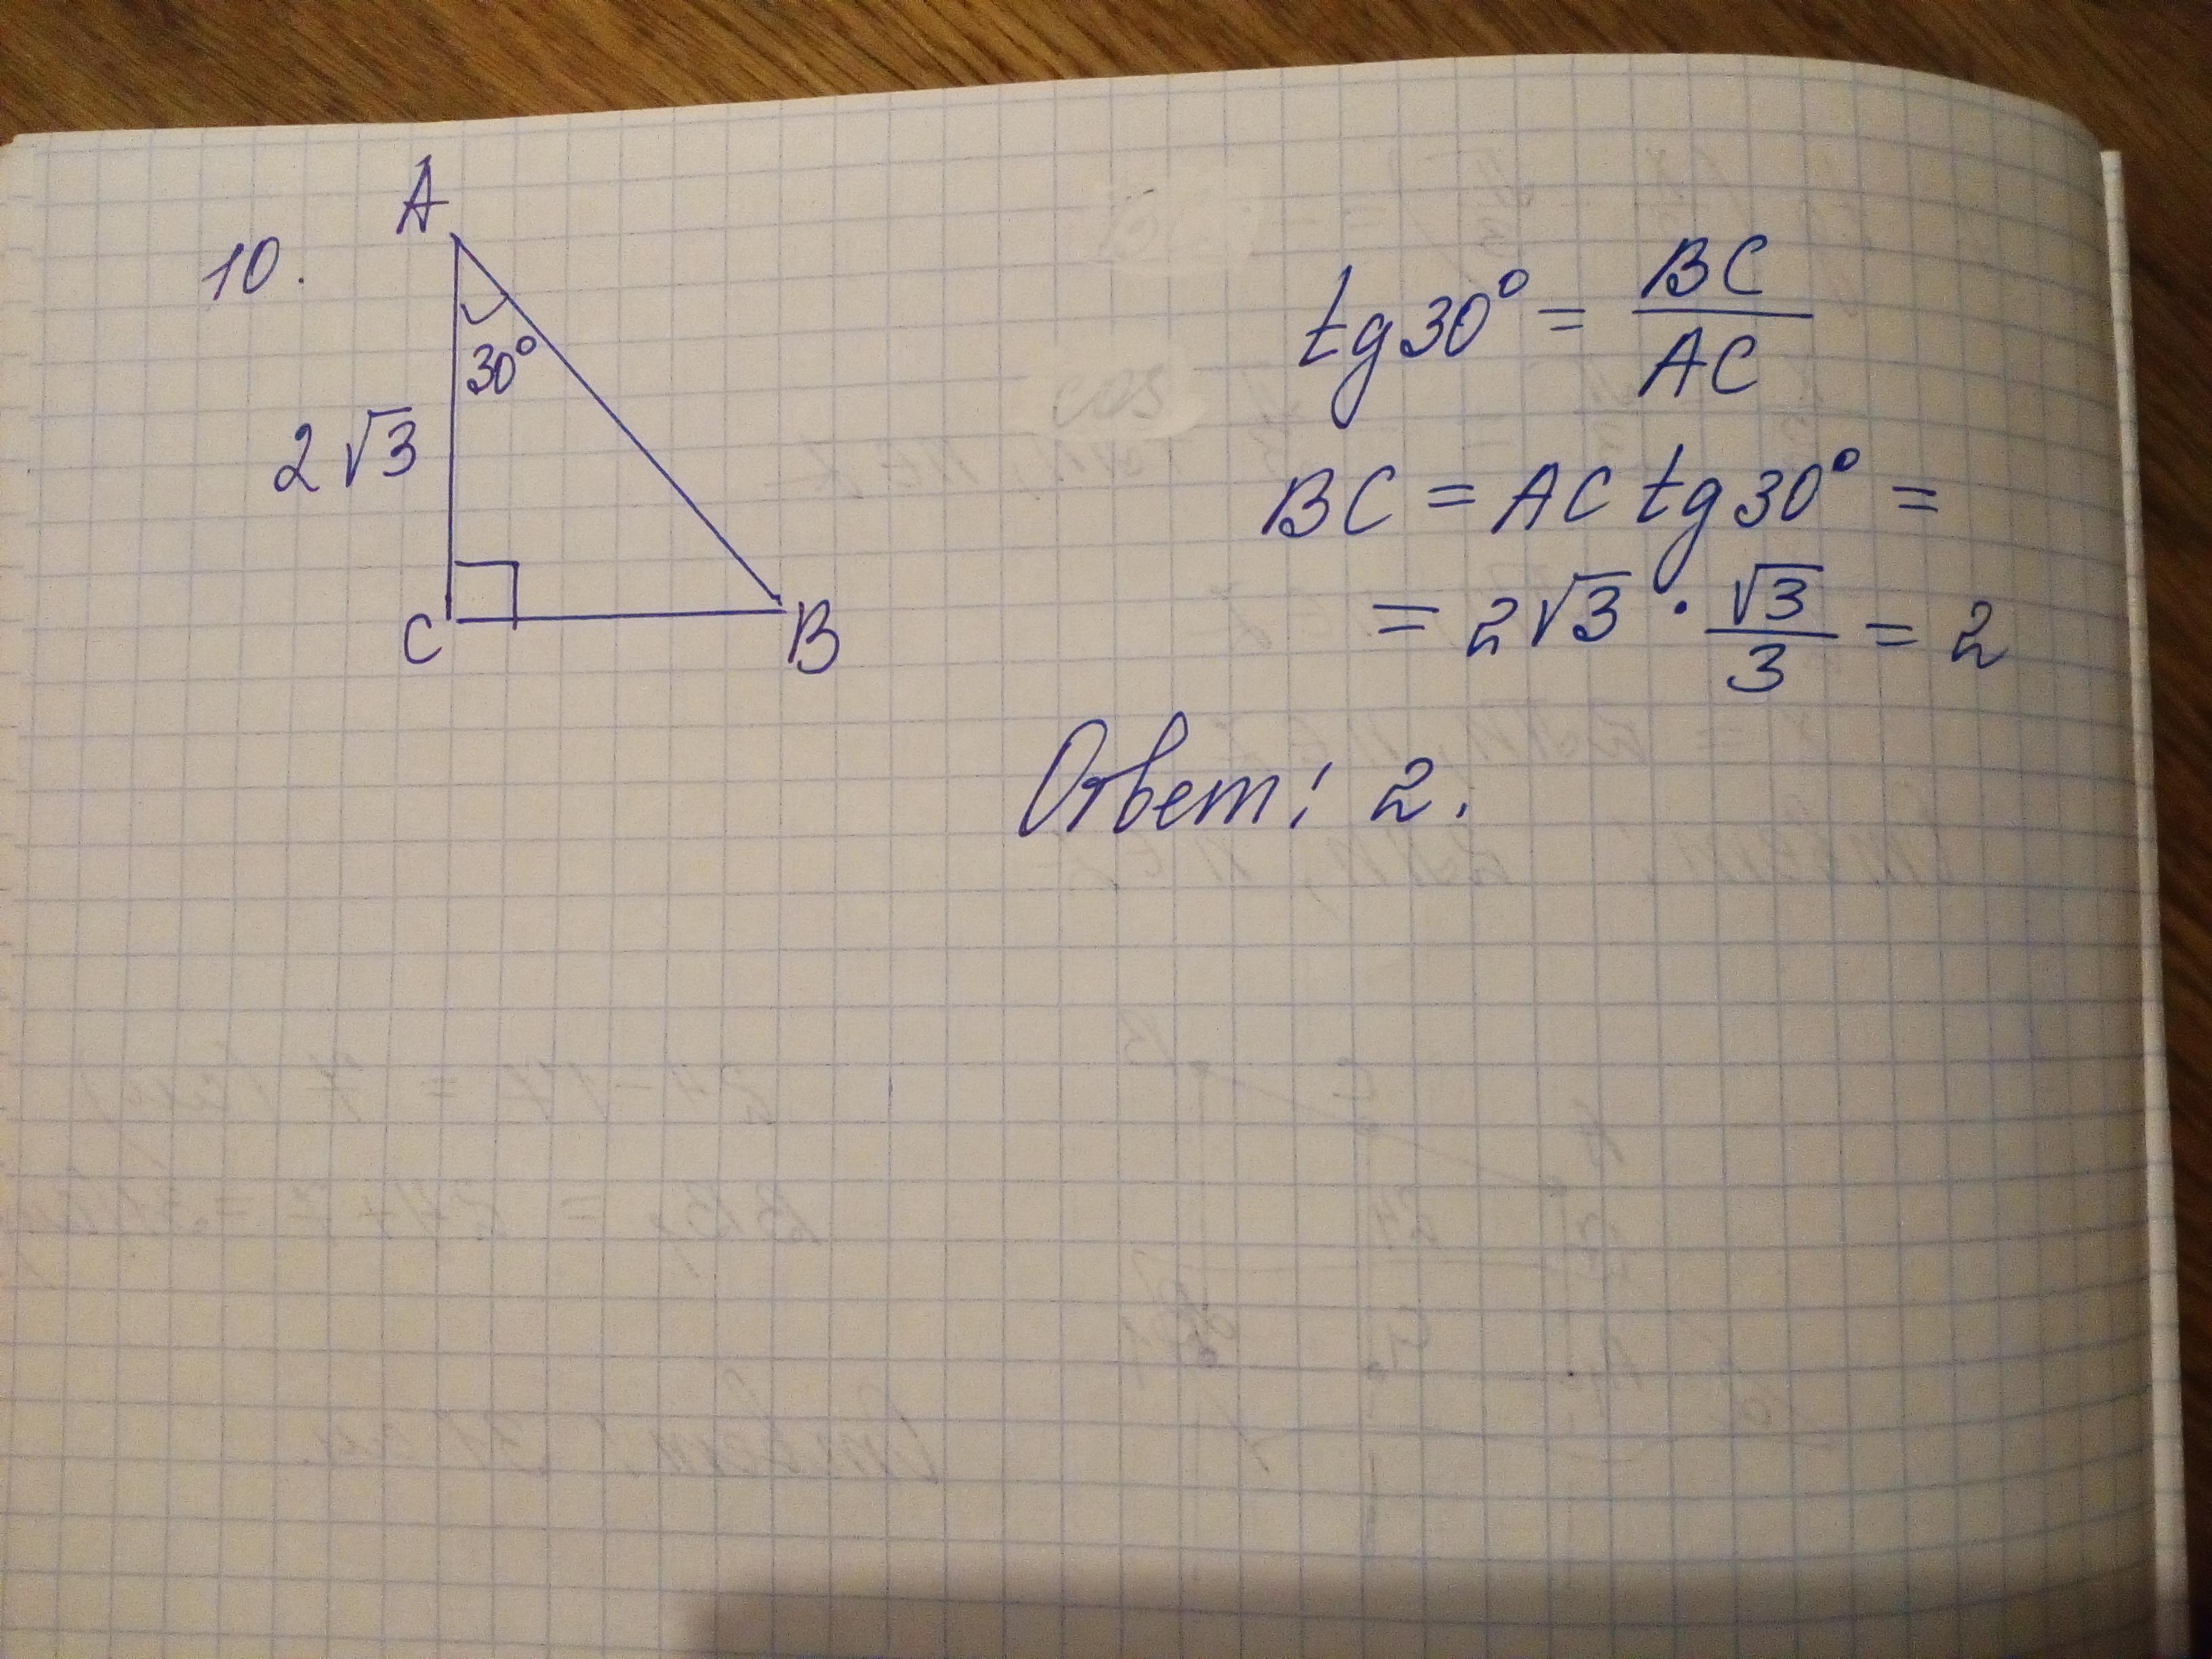 10.
A
30°
2√3
C
B
tg 30° = BC/AC
BC = AC tg 30° =
= 2√3 · √3/3 = 2
Ответ: 2.